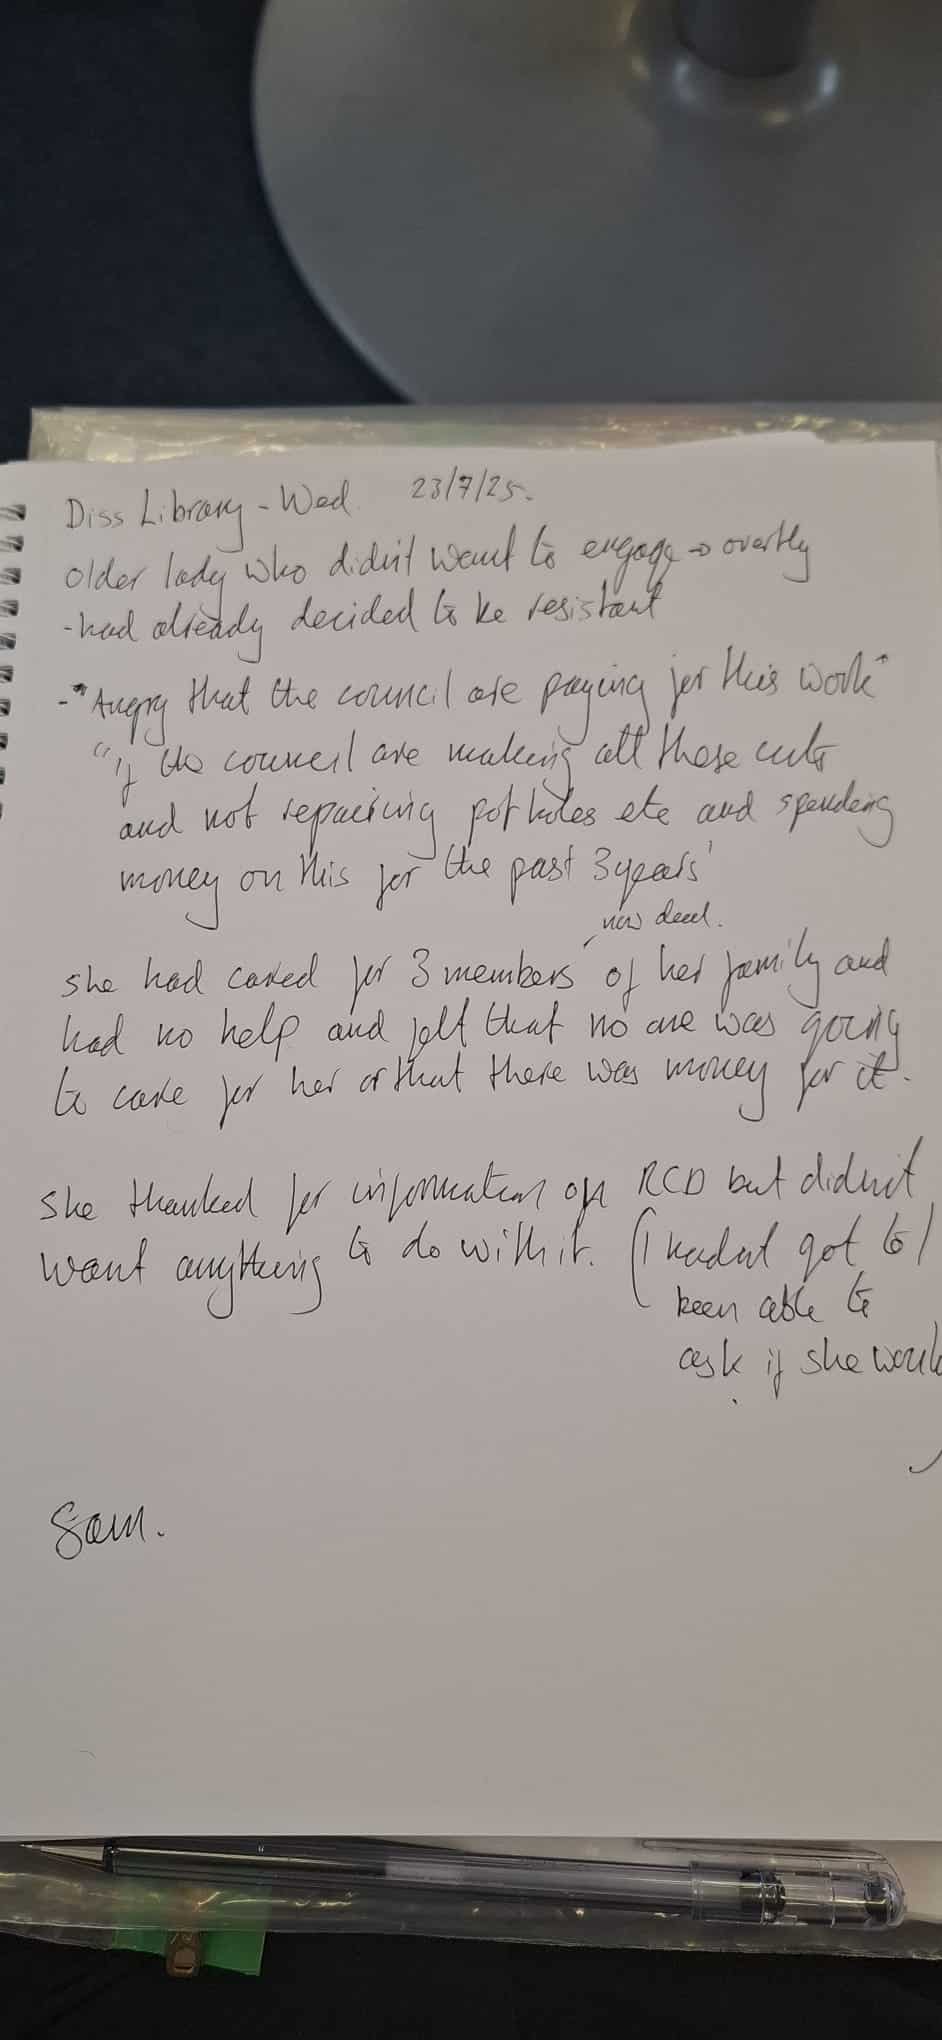 Diss Library - Wed. 23/7/25.
older lady who didn't want to engage → overtly
- had already decided to be resistant
- "Angry that the council are paying for this work"
"if the council are making all these cuts
and not repairing pot holes etc and spending
money on this for the past 3 years'
now dead.
she had cared for 3 members of her family and
had no help and felt that no one was going
to care for her or that there was money for it.
She thanked for information on RCD but didn't
want anything to do with it. (I hadn't got to /
been able to
ask if she would
Sam.